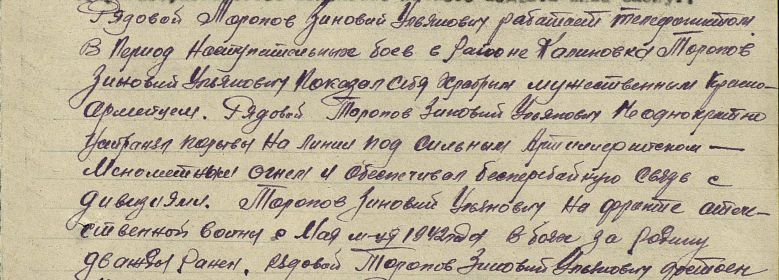 Рядовой Торопов Зиновий Ульянович работает телефонистом
В период наступательных боев в Районе Калиновка Торопов
Зиновий Ульянович показал себя храбрым мужественным Красно-
армейцем. Рядовой Торопов Зиновий Ульянович неоднократно
порывы на линии под сильным Артиллеритском —
Минометным огнем и обеспечивал бесперебайную связь с
дивизиями. Торопов Зиновий Ульянович на фронте отече-
ственной войны с Мая м-ца 1942 года в боях за родину
дважды ранен. Рядовой Торопов Зиновий Ульянович достоен